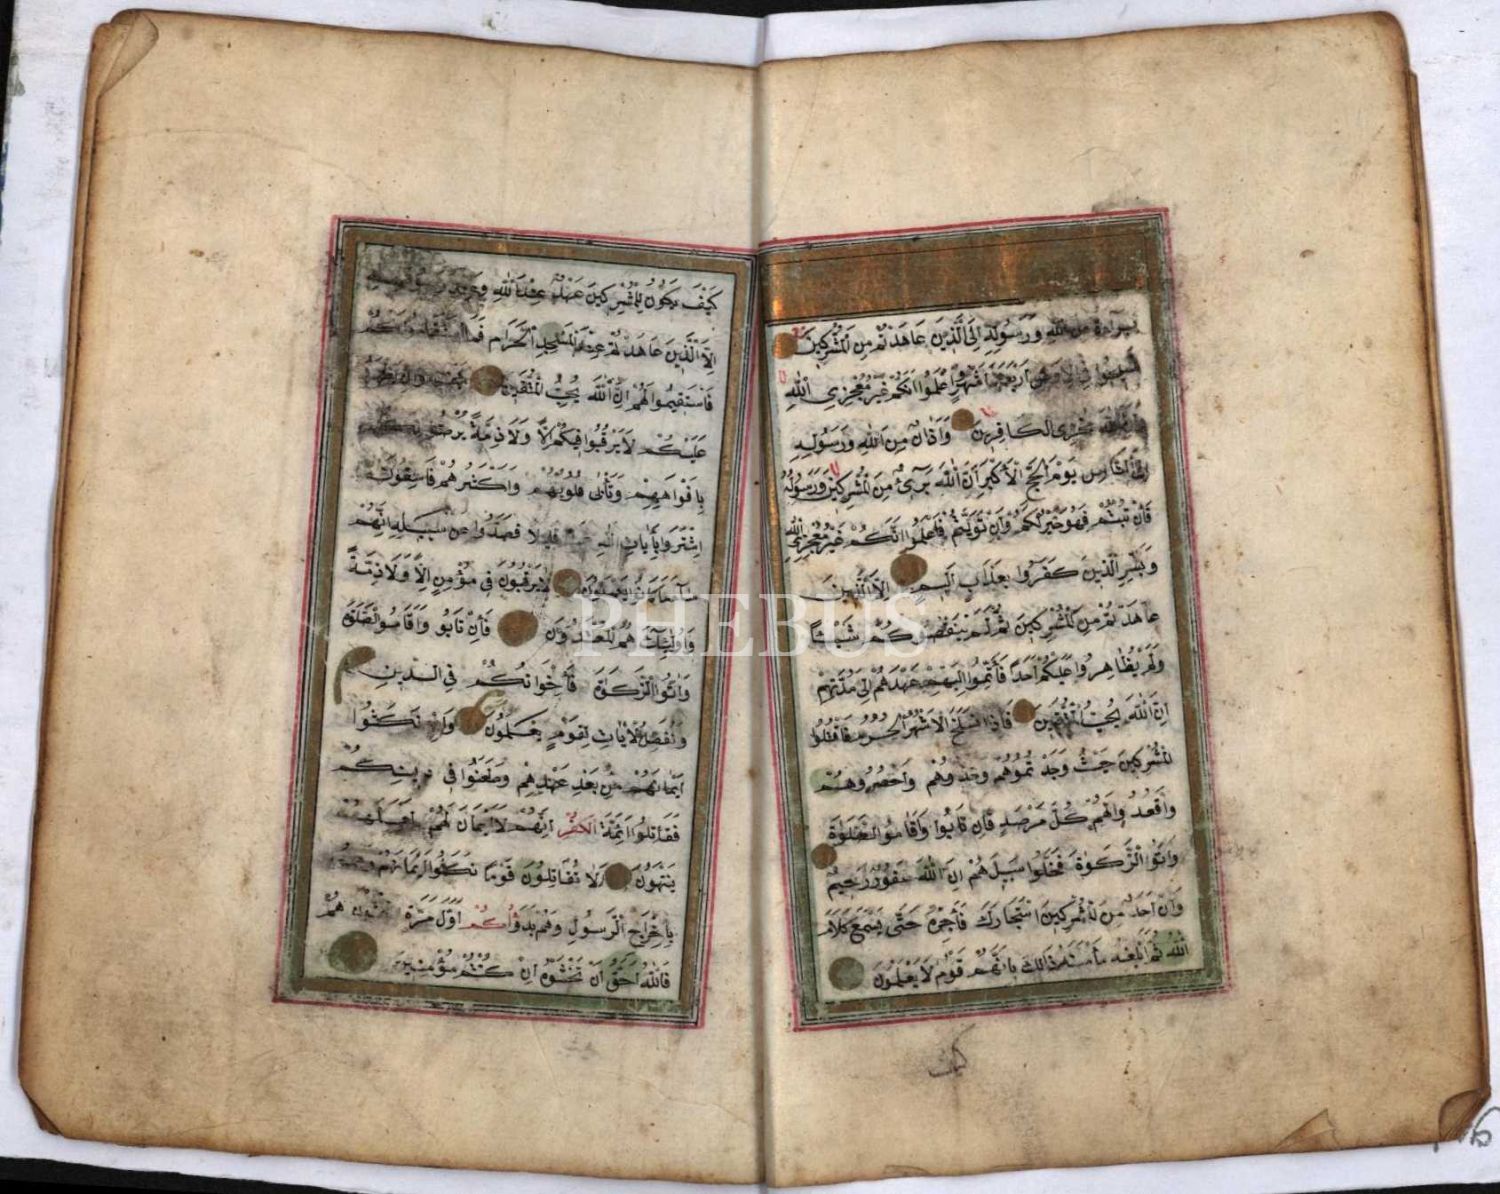 براءة من الله ورسوله الى الذين عاهدتم من المشركين
فسيحوا في الارض اربعة اشهر واعلموا انكم غير معجزي الله
وان الله مخزى الكافرين واذان من الله ورسوله
الى الناس يوم الحج الاكبر ان الله برئ من المشركين ورسوله
فان تبتم فهو خير لكم وان توليتم فاعلموا انكم غير معجزي الله
وبشر الذين كفروا بعذاب اليم الا الذين
عاهدتم من المشركين ثم لم ينقصوكم شيئا
ولم يظاهروا عليكم احدا فاتموا اليهم عهدهم الى مدتهم
ان الله يحب المتقين فاذا انسلخ الاشهر الحرم فاقتلوا
المشركين حيث وجدتموهم وخذوهم واحصروهم
واقعدوا لهم كل مرصد فان تابوا واقاموا الصلوة
واتوا الزكوة فخلوا سبيلهم ان الله غفور رحيم
وان احد من المشركين استجارك فأجره حتى يسمع كلام
الله ثم ابلغه مأمنه ذالك بانهم قوم لا يعلمون
كيف
كيف يكون للمشركين عهد عند الله وعند رسوله
الا الذين عاهدتم عند المسجد الحرام فما استقاموا لكم
فاستقيموا لهم ان الله يحب المتقين كيف وان يظهروا
عليكم لا يرقبوا فيكم الا ولا ذمة يرضونكم
بافواههم وتأبى قلوبهم واكثرهم فاسقون
اشتروا بأيات الله ثمنا قليلا فصدوا عن سبيله انهم
ساء ما كانوا يعملون لا يرقبون في مؤمن الا ولا ذمة
واولئك هم المعتدون فأن تابو واقاموا الصلوة
واتوا الزكوة فأخوانكم في الدين
ونفصل الأيات لقوم يعلمون وان نكثوا
ايمانهم من بعد عهدهم وطعنوا في دينكم
فقاتلوا ائمة الكفر انهم لا ايمان لهم لعلهم
ينتهون الا تقاتلون قوما نكثوا ايمانهم وهموا
بأخراج الرسول وهم بدؤكم اول مرة اتخشونهم
فالله احق ان تخشوه ان كنتم مؤمنين
PHEBUS